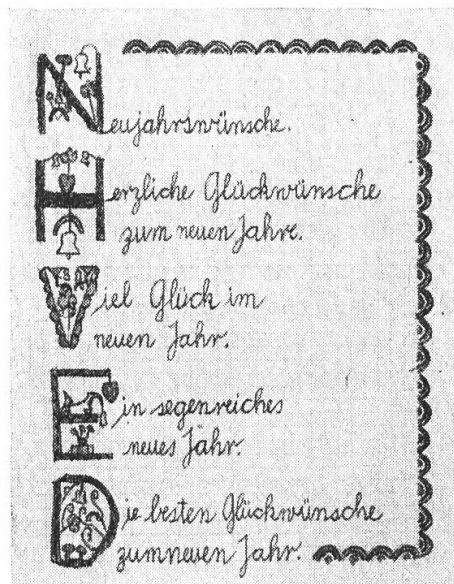 Neujahrswünsche.
Herzliche Glückwünsche
zum neuen Jahre.
Viel Glück im
neuen Jahr.
Ein segenreiches
neues Jahr.
Die besten Glückwünsche
zum neuen Jahr.